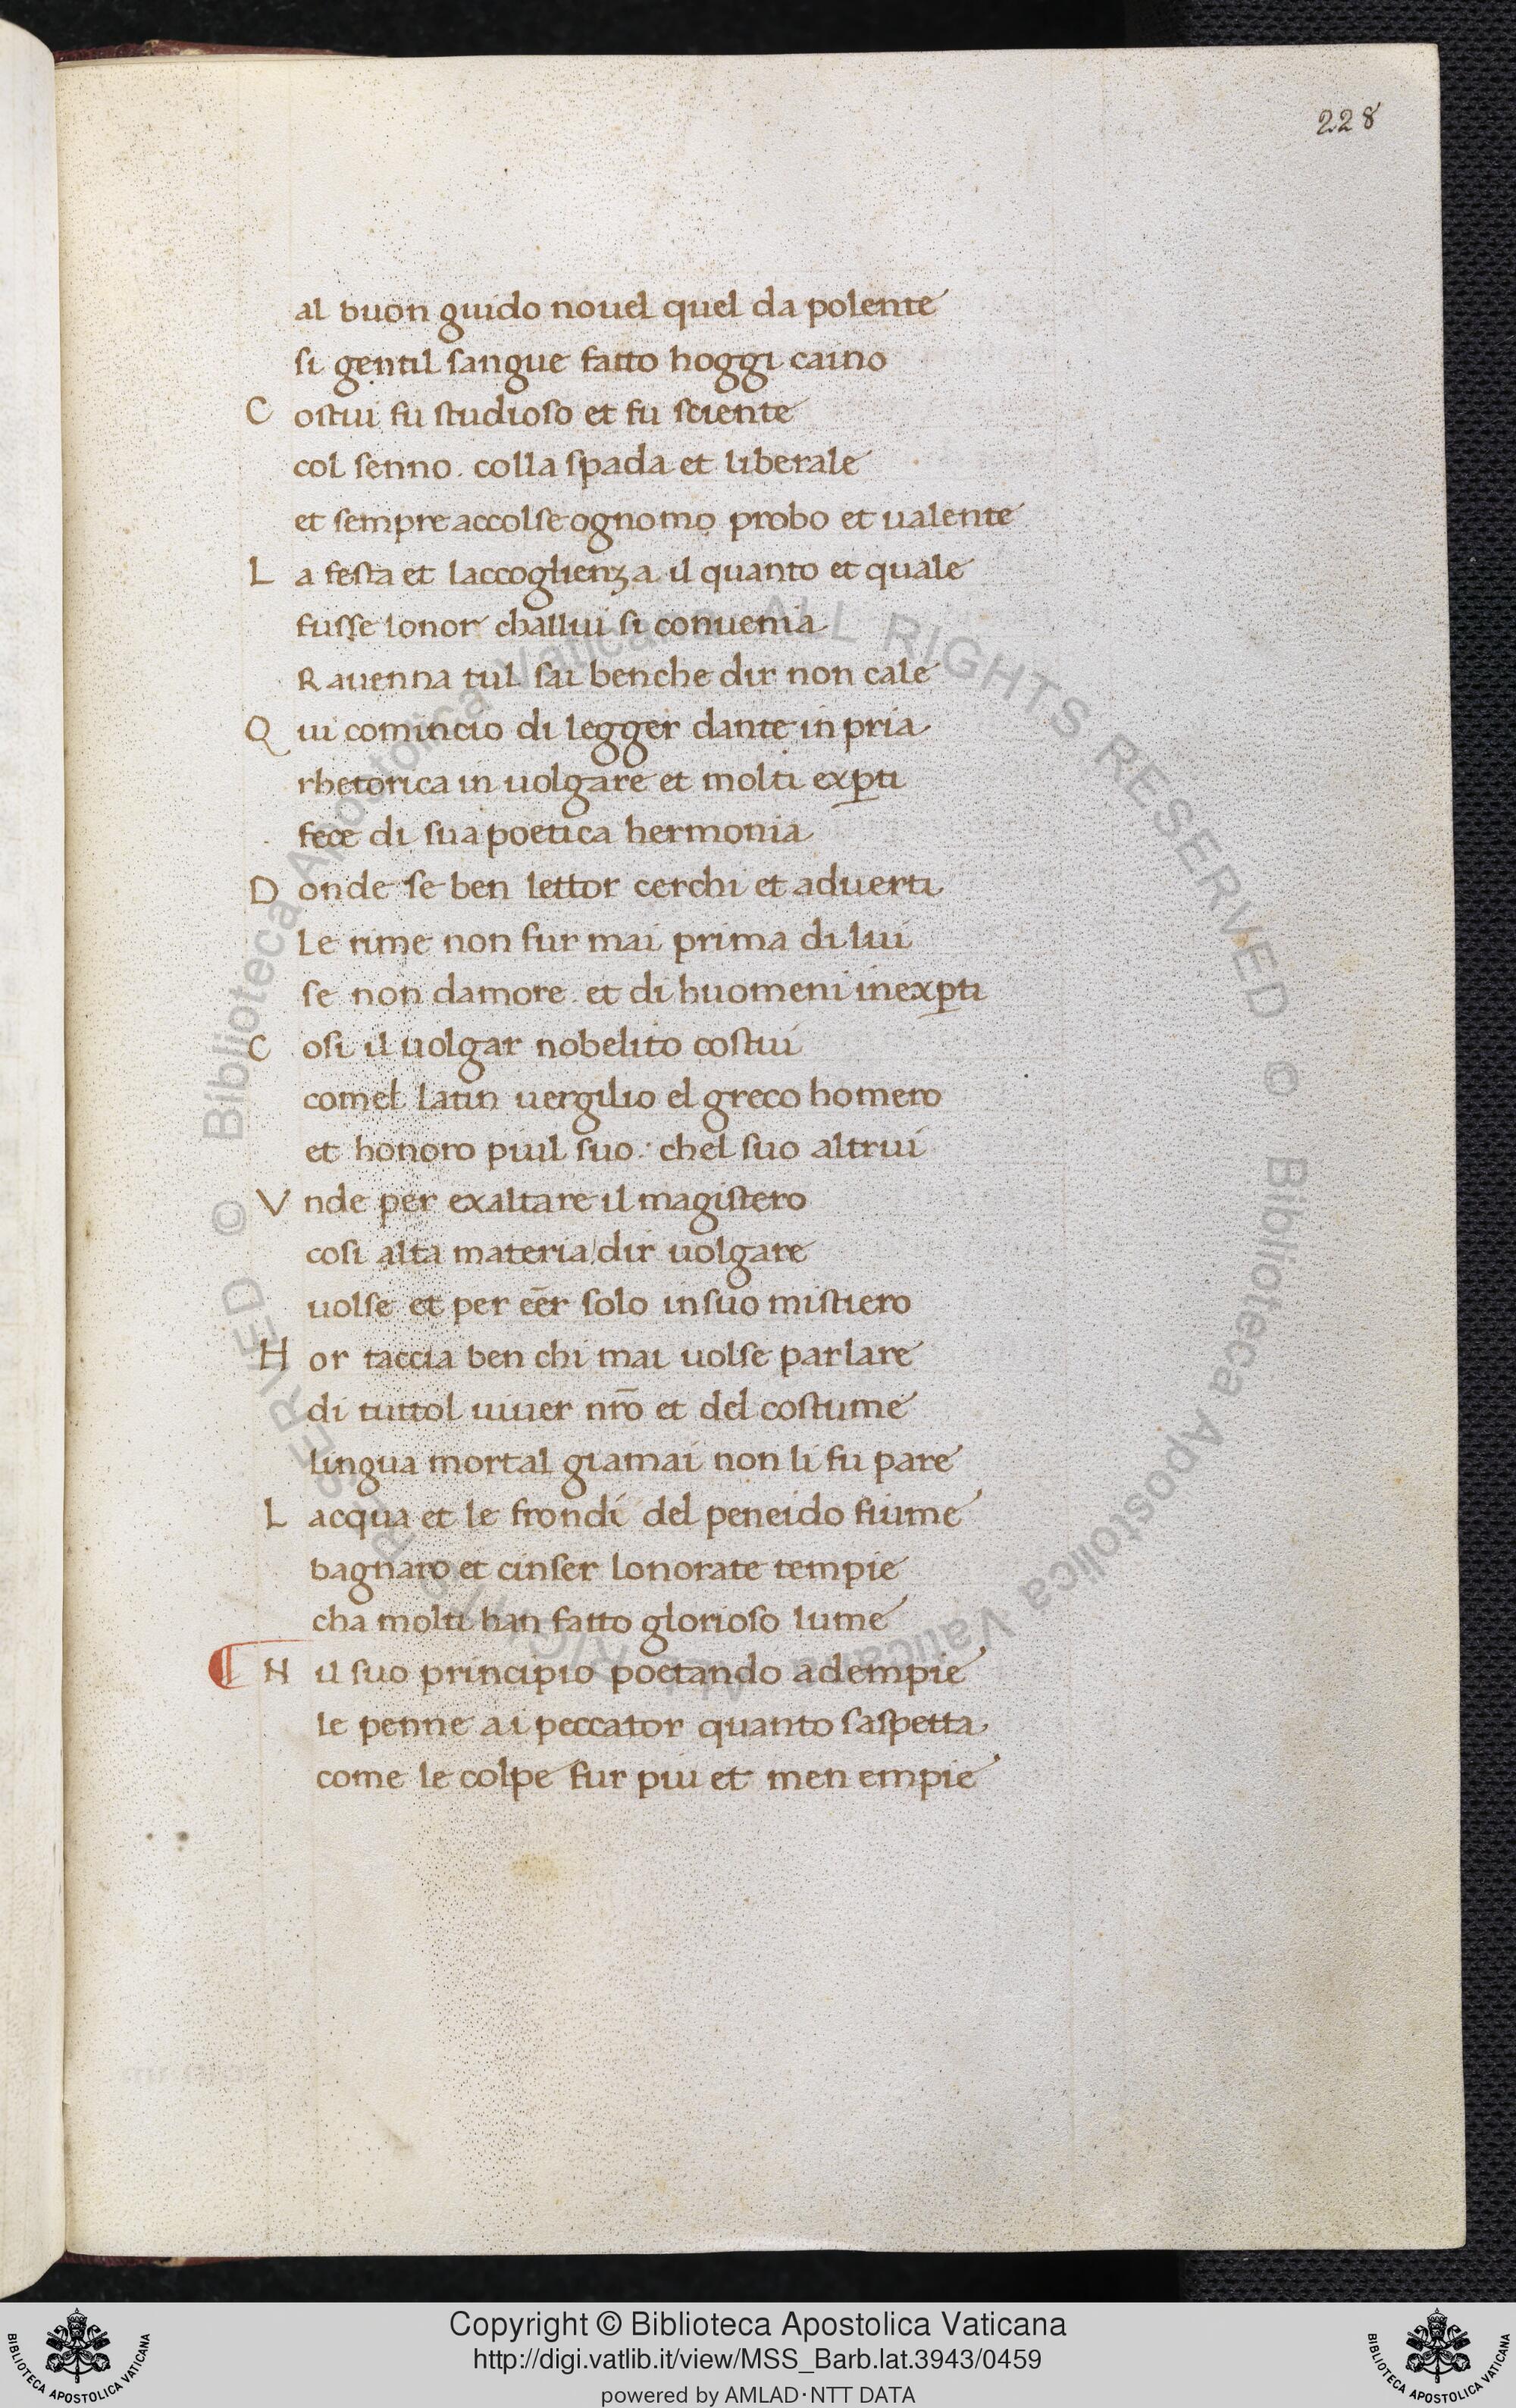 228
al buon guido nouel quel da polente
si gentil sangue fatto hoggi caino
C ostui fu studioso et fu sciente
col senno. colla spada et liberale
et sempre accolse ognomo probo et ualente
L a festa et laccoglienza il quanto et quale
fusse lonor challui si conuenia
Rauenna tul sai benche dir non cale
Q ui comincio di legger dante in pria
rhetorica in uolgare et molti exꝑti
fece di sua poetica hermonia
D onde se ben lettor cerchi et aduerti
Le rime non fur mai prima di lui
se non damore. et di huomeni inexꝑti
C osi il uolgar nobelito costui
comel latin uergilio el greco homero
et honoro piuil suo. chel suo altrui
V nde per exaltare il magistero
cosi alta materia/dir uolgare
uolse et per eēr solo in suo mistiero
H or taccia ben chi mai uolse parlare
di tuttol uiuer nr̄o et del costume
lingua mortal giamai non li fu pare
L acqua et le frondi del peneido fiume
bagnaro et cinser lonorate tempie
cha molti han fatto glorioso lume
¶ N il suo principio poetando adempie
le penne ai peccator quanto saspetta
come le colpe fur piu et men empie
© Biblioteca Apostolica Vaticana ALL RIGHTS RESERVED © Biblioteca Apostolica Vaticana ALL RIGHTS RESERVED
BIBLIOTECA APOSTOLICA VATICANA
Copyright © Biblioteca Apostolica Vaticana
http://digi.vatlib.it/view/MSS_Barb.lat.3943/0459
powered by AMLAD·NTT DATA
BIBLIOTECA APOSTOLICA VATICANA